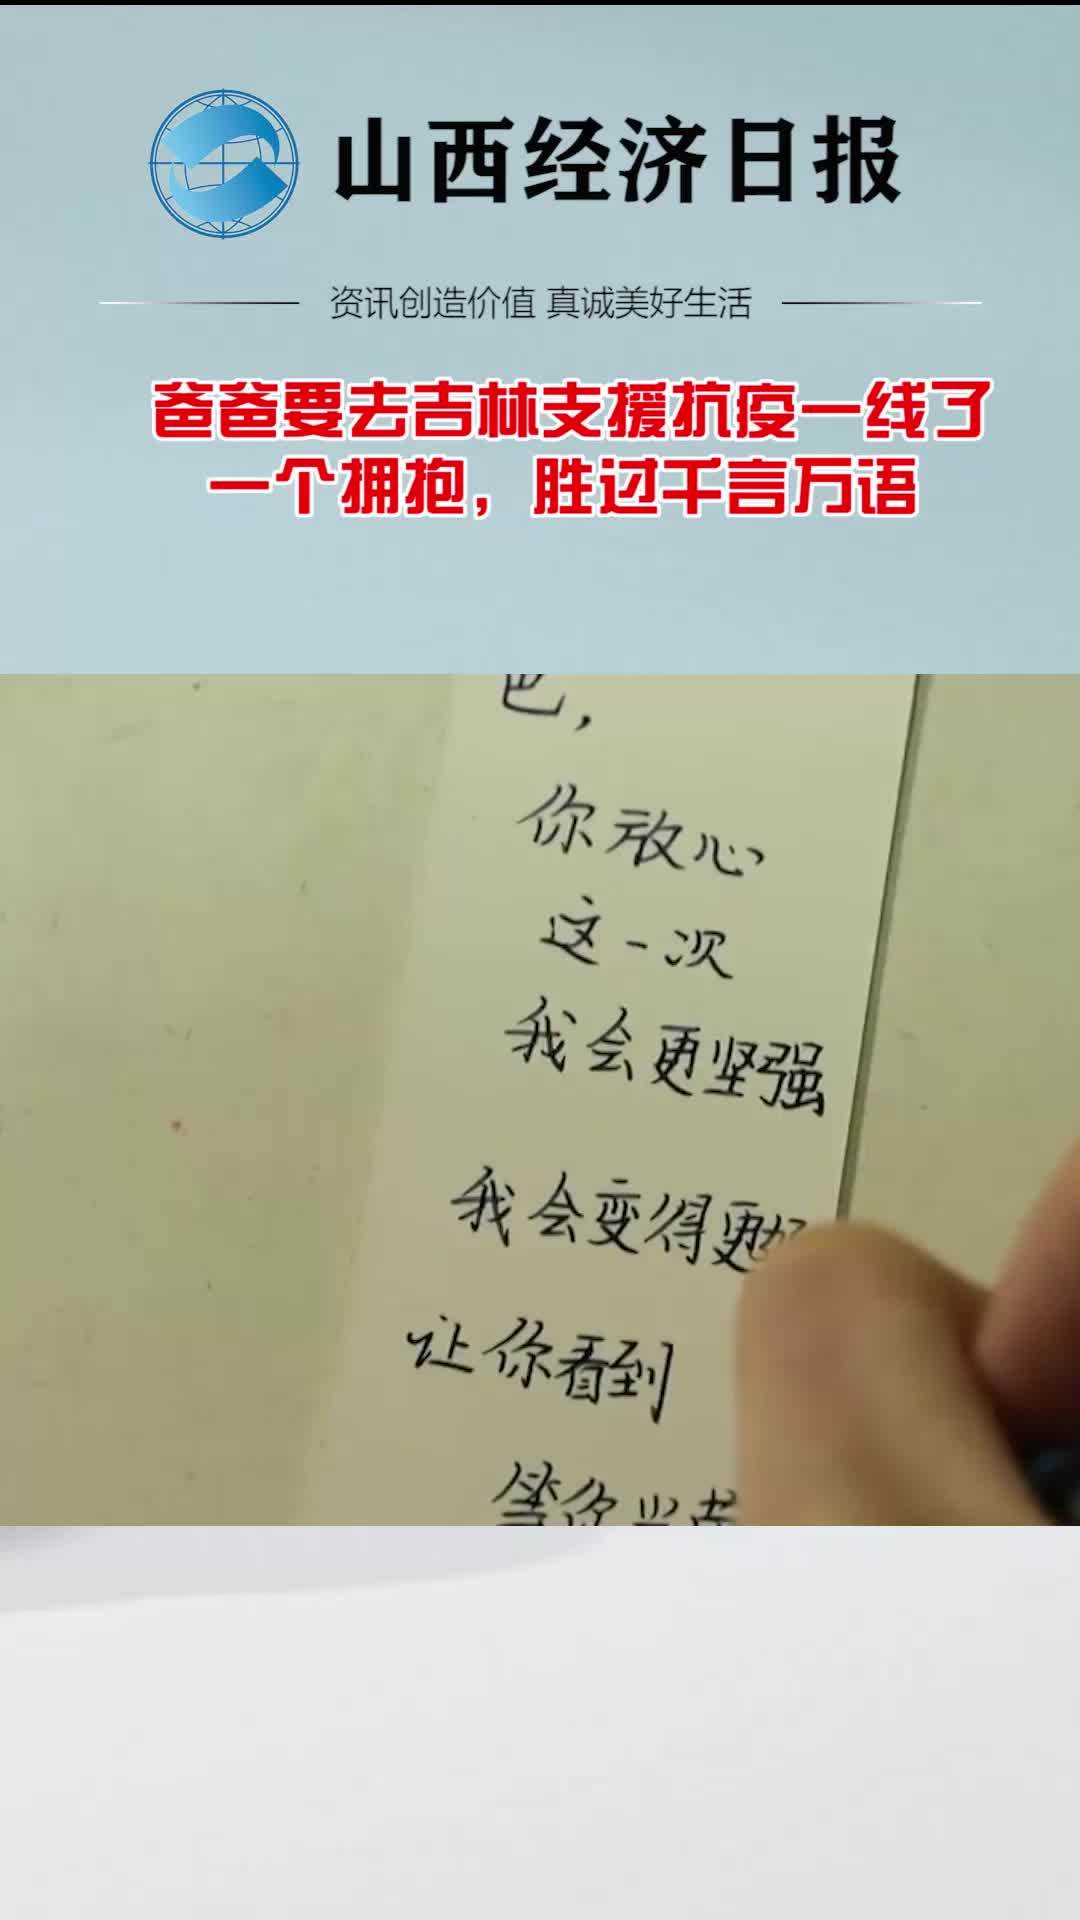 山西经济日报
资讯创造价值 真诚美好生活
爸爸要去吉林支援抗疫一线了
一个拥抱，胜过千言万语
你放心
这一次
我会更坚强
我会变得更
让你看到
等你